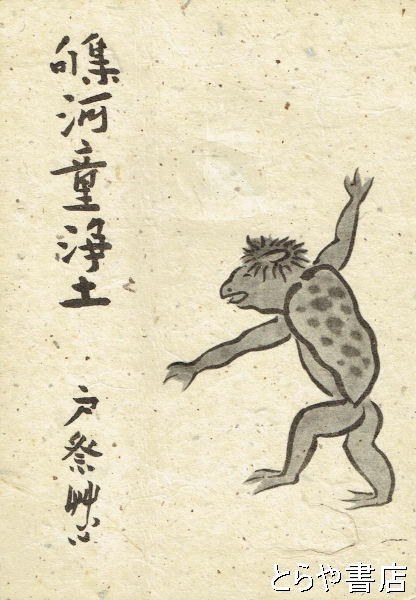 句集河童浄土
戸祭艸
とらや書店